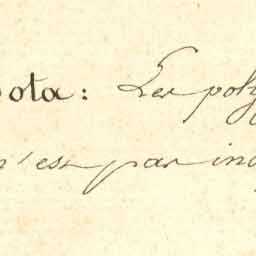 ota: Les poly
n'est pas ind